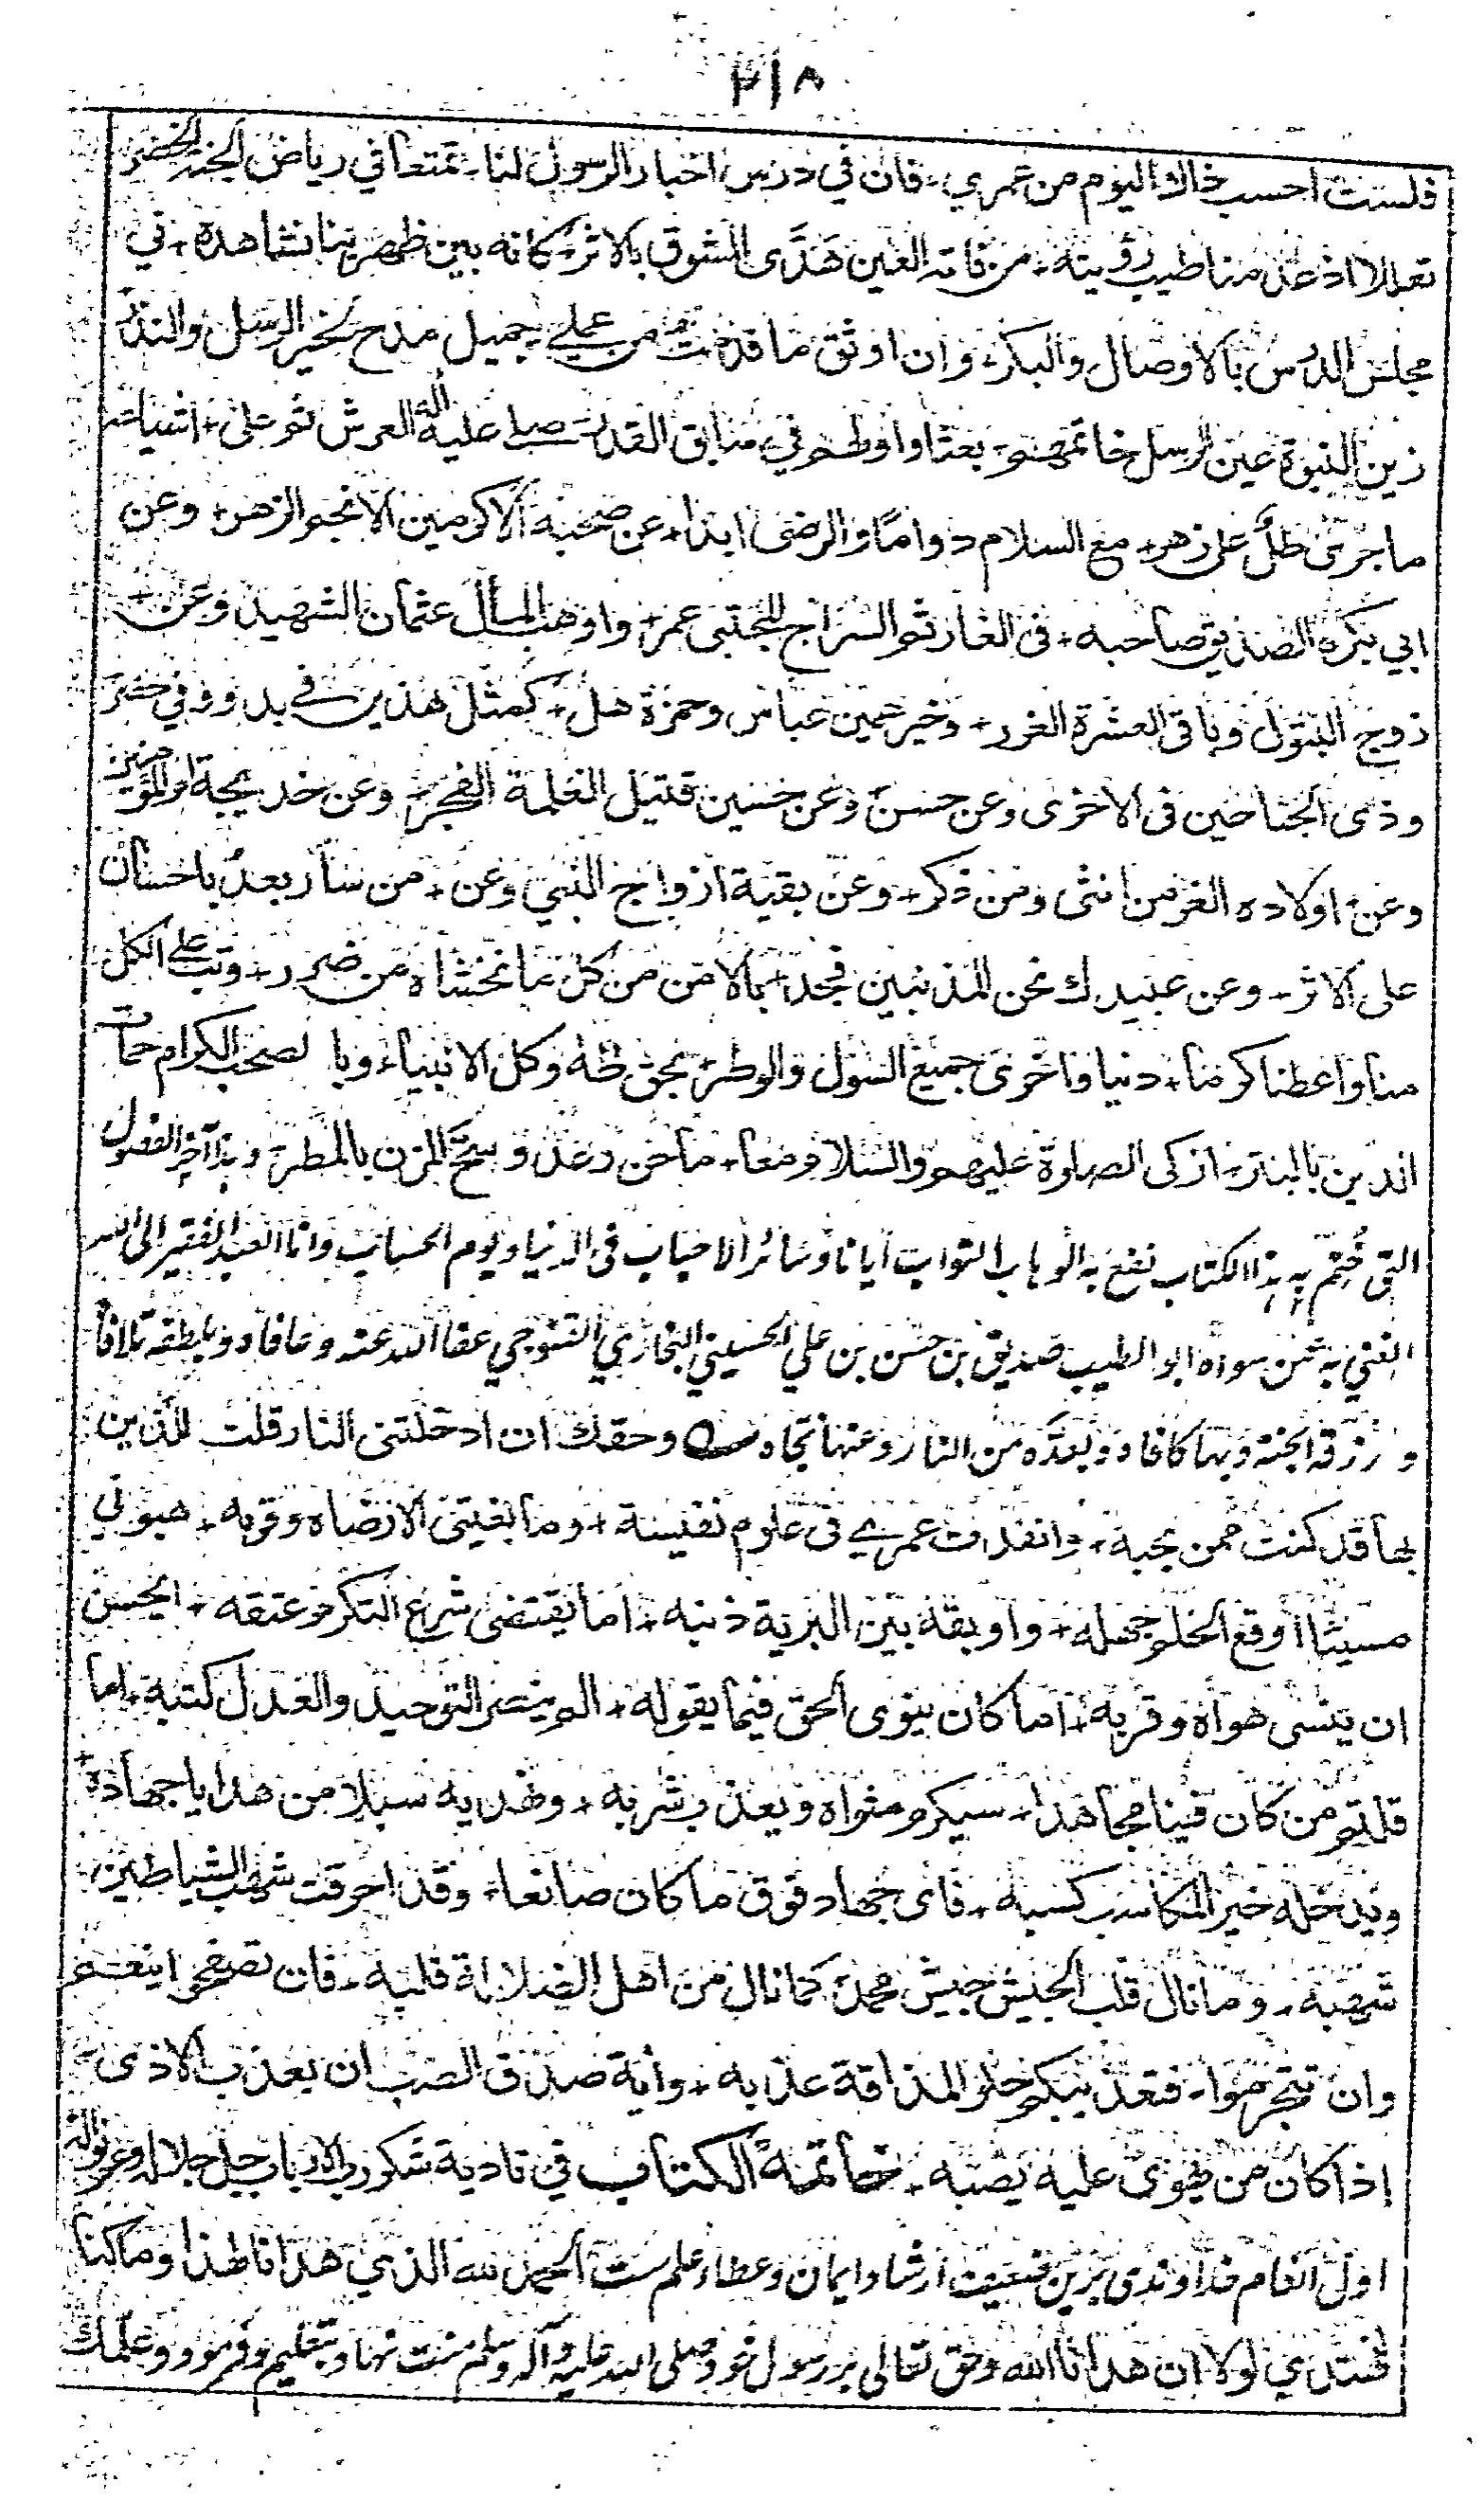 ٢١٨
فلست احسب ذاك اليوم من عمري + فان في درس اخبار الرسول لنا + تمتعا في رياض الجنة الخضر
تعللا اذ عدمنا طيب رؤيته + من فاته العين هدّى الشوق بالاثر + كانه بين ظهرينا نشاهده + في
مجلس الدرس بالاوصال والبكر + وان اوثق ما قدمت من عملي + جميل مدح لخير الرسل والنذر
زين النبوة عين الرسل خاتمهم + بعثا واولهم في سابق القدر + صلى عليه اله العرش ثم على + اشياعه
ما جرى طلّ على زهر + مع السلام دواما والرضى ابدا + عن صحبه الاكرمين الانجم الزهر + وعن
ابي بكر الصديق صاحبه + في الغار ثم السراج المجتبى عمر + واوهب المال عثمان الشهيد وعن +
زوج البتول وباقي العشرة الغرر + وخير عمين عباس وحمزة هل + كمثل هذين في بدو وفي حضر
وذي الجناحين في الاخرى وعن حسن + وعن حسين قتيل الغلمة الفجر + وعن خديجة ام المؤمنين
وعن + اولاده الغر من انثى ومن ذكر + وعن بقية ازواج النبي وعن + من سار بعد باحسان
على الاثر + وعن عبيدك نحن المذنبين فجد + بالامن من كل ما نخشاه من ضرر + وتب على الكل
منا واعطنا كرما + دنيا واخرى جميع السول والوطر + بحق طه وكل الانبياء وبا لصحب الكرام حماة
الدين بالبتر + ازكى الصلوة عليهم والسلام معا + ما حن رعد وسح المزن بالمطر + وهذا آخر الفصول
التي ختم به هذا الكتاب نفع به الوهاب التواب ايانا وسائر الاحباب في الدنيا ويوم الحساب وانا العبد الفقير الى الله
الغني به عمن سواه ابو الطيب صديق بن حسن بن علي الحسيني البخاري القنوجي عفا الله عنه وعافاه وبلطفه تلافاه
ورزقه الجنة وبها كافاه وبعده من النار وعنها نجاه وحقك ان ادخلتني النار قلت للذين
بها قد كنت ممن يحبه + وانفدت عمري في علوم نفيسة + وما بغيتي الا رضاه وقربه + هبوني
مسيئا اوقع الحلم جهله + واوبقه بين البرية ذنبه + اما يقتضي شرع التكرم عتقه + ايحسن
ان ينسى هواه وقربه + اما كان ينوي الحق فيما يقوله + الم ينصر التوحيد والعدل كتبه + اما
قلتم من كان فينا مجاهدا + سيكرم مثواه ويعذب شربه + ونهديه سبلا من هدايا جهاده +
ويدخله خير المكاسب كسبه + فاي جهاد فوق ما كان صانعا + وقد احرقت شهب الشياطين
شهبه + وما نال قلب الجيش جيش محمد + كما نال من اهل الضلالة قلبه + فان تصفحوا ينعم
وان تتجرموا + فتعذيبكم حلو المذاقة عذبه + وآية صدق الصب ان يعذب الاذى +
إذا كان من يهوى عليه يصبه + خاتمة الكتاب في تادية شكر رب الارباب جل جلاله وعم نواله
اول انعام خداوندي برين ضعيف ارشاد ايمان وعطاء علم ست الحمد لله الذي هدانا لهذا وما كنا
لنهتدي لولا ان هدانا الله وحق تعالى بر رسول خود صلى الله عليه وآله وسلم منت نهاد بتعليم وفرمود وعلمك